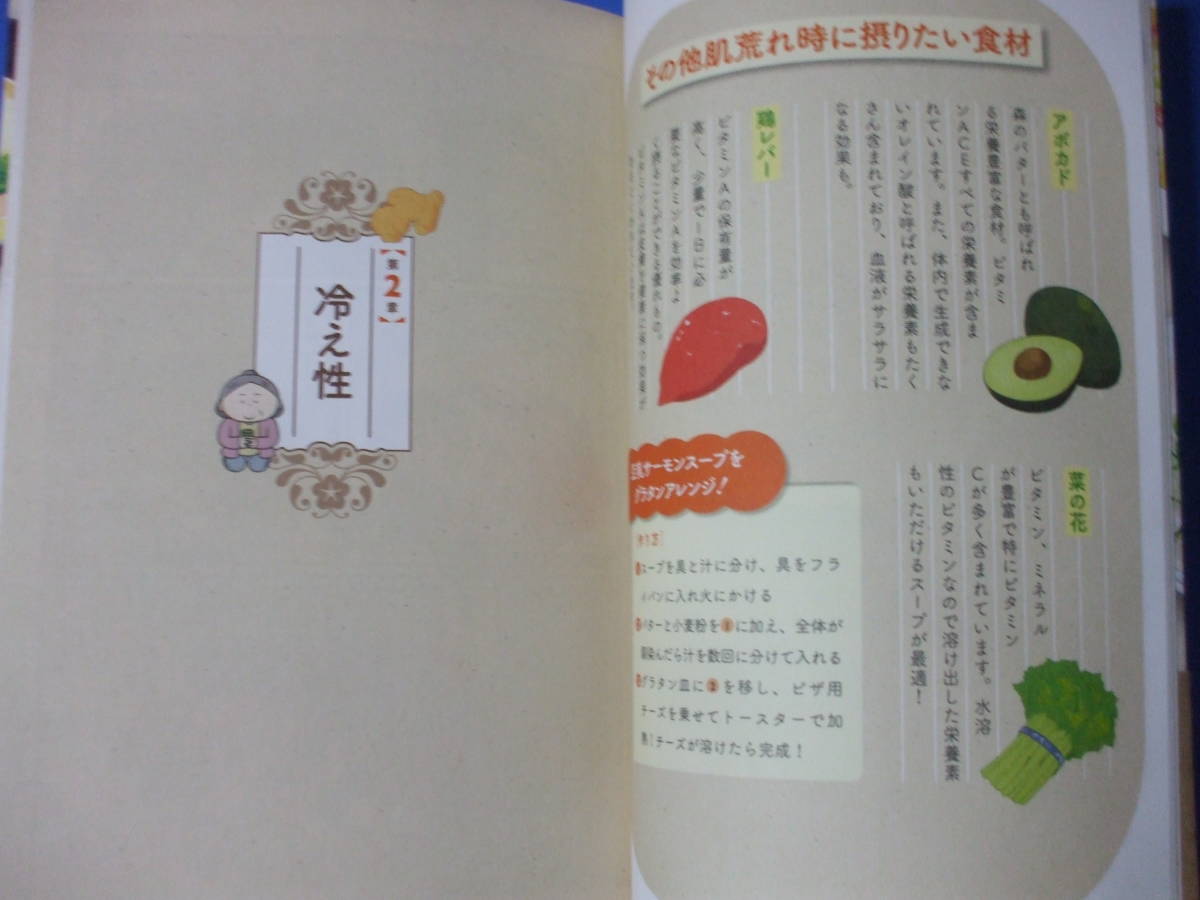 その他肌荒れ時に摂りたい食材
アボカド
森のバターとも呼ばれ
る栄養豊富な食材。ビタミ
ンACEすべての栄養素が含ま
れています。また、体内で生成できな
いオレイン酸と呼ばれる栄養素もたく
さん含まれており、血液がサラサラに
なる効果も。
鶏レバー
ビタミンAの保有量が
高く、少量で一日に必
要なビタミンAを効率よ
く摂ることができる優れもの。
菜の花
ビタミン、ミネラル
が豊富で特にビタミン
Cが多く含まれています。水溶
性のビタミンなので溶け出した栄養素
もいただけるスープが最適！
豆乳サーモンスープを
グラタンアレンジ！
[作り方]
❶スープを具と汁に分け、具をフラ
イパンに入れ火にかける
❷バターと小麦粉を❶に加え、全体が
馴染んだら汁を数回に分けて入れる
❸グラタン皿に❷を移し、ピザ用
チーズを乗せてトースターで加
熱！チーズが溶けたら完成！
【第2章】
冷え性